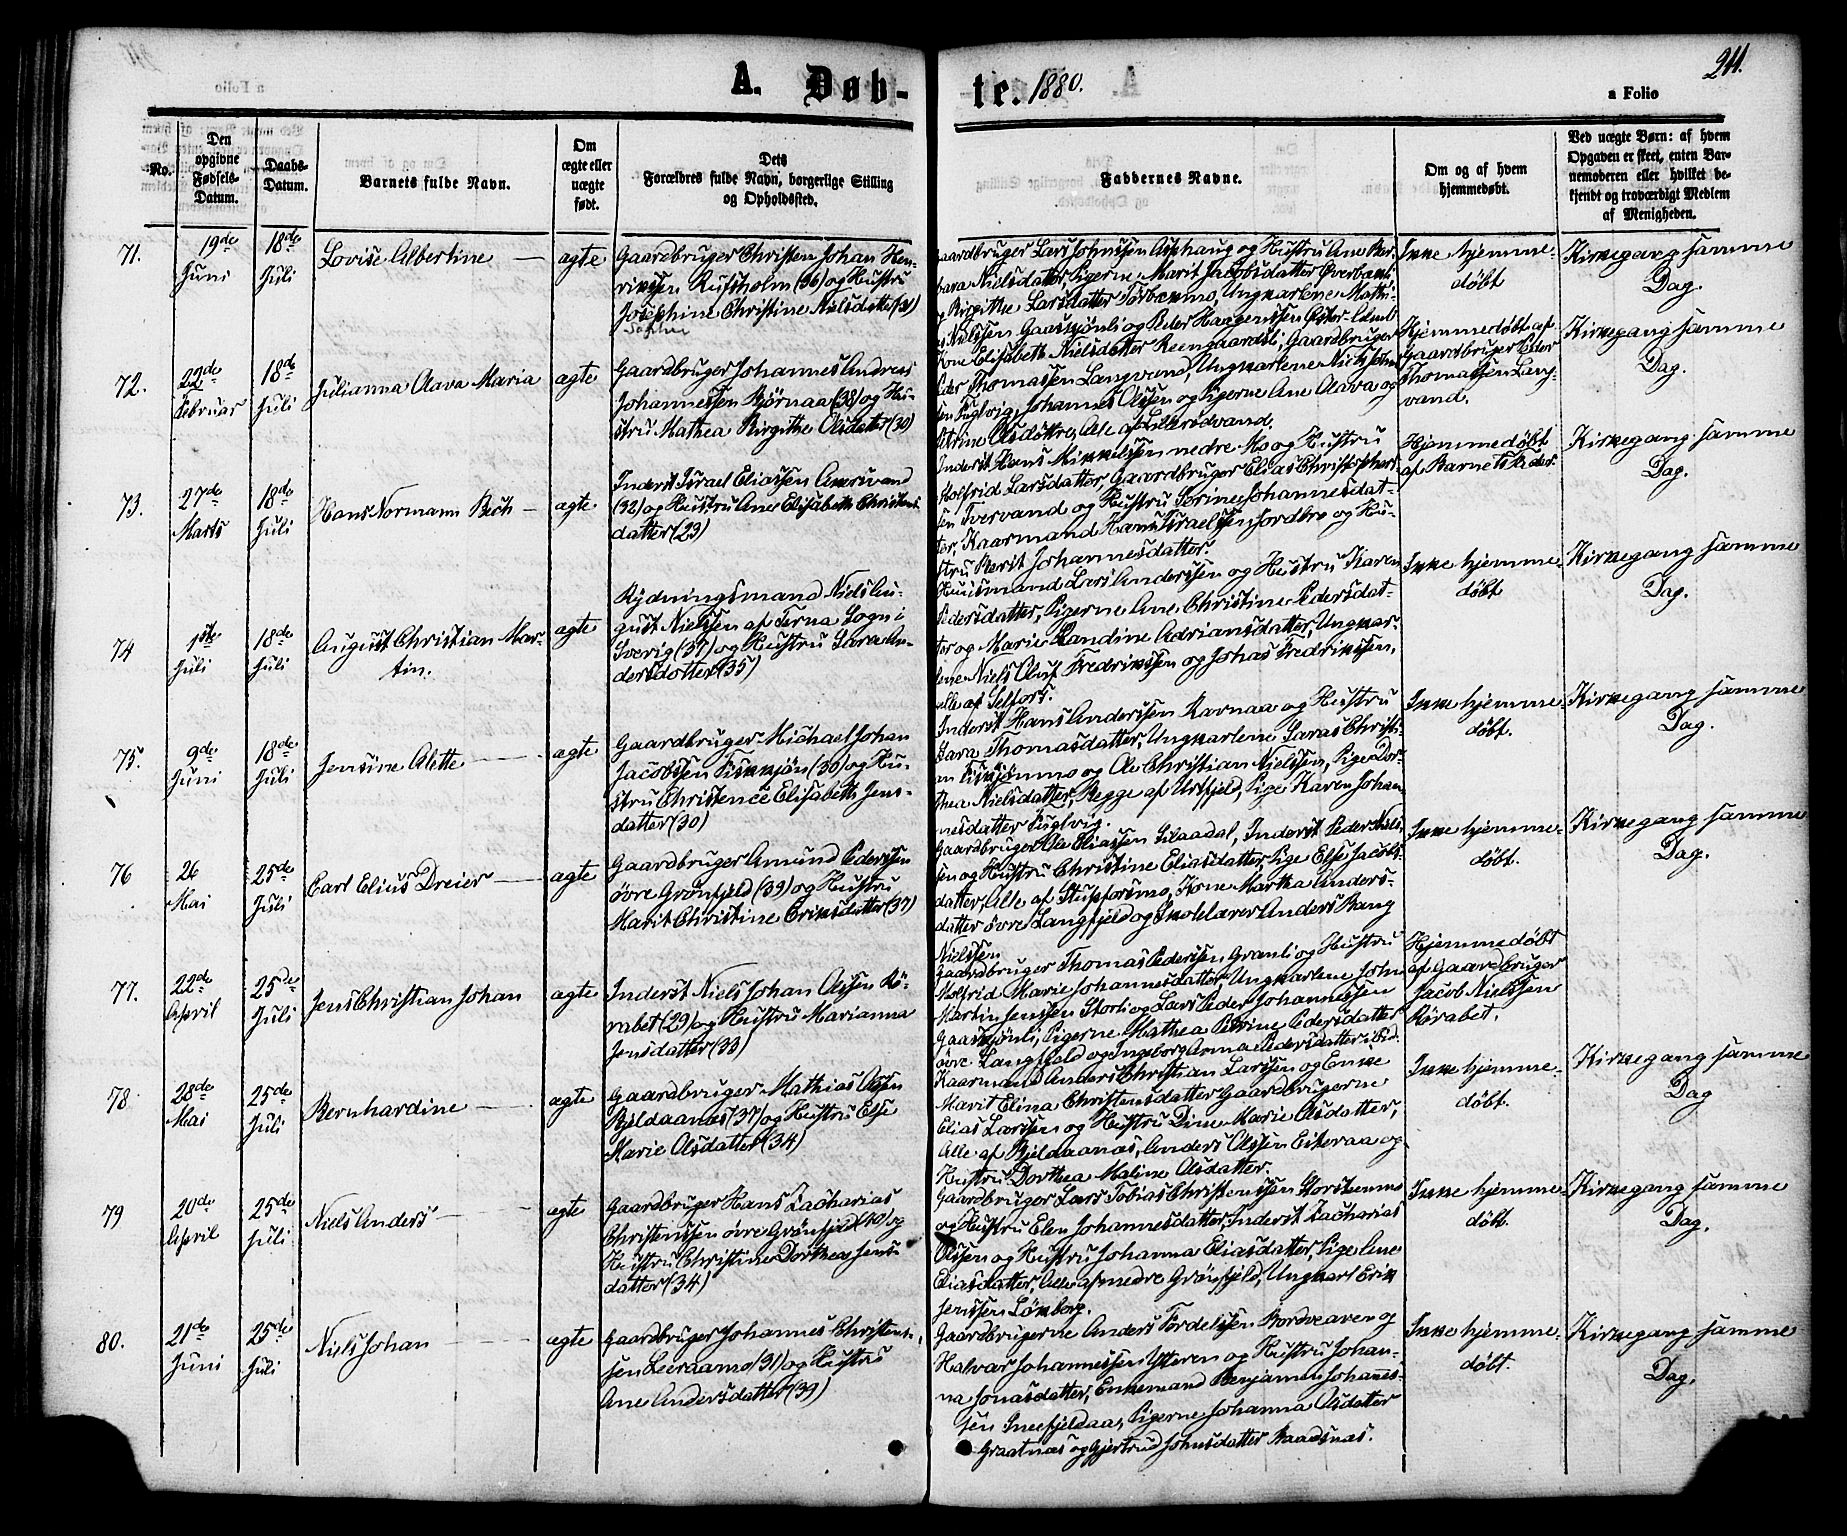 A. Døb-
te. 1880.
241.
a Folio
No.
Den
opgivne
Fødsels-
Datum.
Daabs-
Datum.
Barnets fulde Navn.
Om
ægte eller
uægte
født.
Dets
Forældres fulde Navn, borgerlige Stilling
og Opholdssted.
Faddernes Navne.
Om og af hvem
hjemmedøbt.
Ved uægte Børn: af hvem
Opgaven er skeet, enten Bar-
nemoderen eller hvilket be-
kjendt og troværdigt Medlem
af Menigheden.
71.
19de
Juni
18de
Juli
Lovise Albertine
ægte
Gaardbruger Christen Johan Hen-
riksen Rufsholm (36) og Hustru
Josephine Christine Nielsdatter (31)
Gaardbruger Lars Johnssen Asphaug og Hustru Ane Bar-
bara Nielsdatter, Pigerne Marit Jacobsdatter
og Birgithe Larsdatter Forbæmmo, Ungkarlene Mathi-
as Nielssen Gaasskjønli og Peder Haagenssen
Ikke hjemme-
døbt
Kirkegang samme
Dag.
72.
22de
Februar
18de
Juli
Julianna Olava Maria
ægte
Gaardbruger Johannes Andreas
Johannessen Bjørnaa (38) og Hu-
stru Mathea Birgithe Olsdatter (30)
Kone Elisabeth Nielsdatter Reengaardsli, Gaardbruger
Peder Thomassen Langvand, Ungkarlene Niels Johan-
sen Fuglvig, Johannes Olssen og Pigerne Ane Olava og
Petrine Olsdøttre, Alle af
Hjemmedøbt af
Gaardbruger Peder
Thomassen Lang-
vand.
Kirkegang samme
Dag.
73.
27de
Marts
18de
Juli
Hans Normann Bech
ægte
Inderst Israel Eliassen Anersvand
(32) og Hustru Ane Elisabeth Christens-
datter (23)
Inderst Hans Mikkelssen nedre Mo og Hustru
Holfrid Larsdatter, Gaardbruger Elias Christophers-
sen Tvervand og Hustru Serine Johannesdat-
ter, Kaarmand Hans Israelssen Jordbro og Hu-
stru Berit Johannesdatter.
Hjemmedøbt
af Barnets Fader
Kirkegang samme
Dag.
74
1ste
Juli
18de
Juli
August Christian Mar-
tin.
ægte
Rydningsmand Niels Au-
gust Nielssen af Terna Sogn i
Sverig (37) og Hustru Sara An-
dersdotter (35)
Huusmand Lars Anderssen og Hustru Karen
Pedersdatter, Pigerne Ane Christine Pedersdat-
ter og Marie Landine Adriansdatter, Ungkar-
lene Niels Oluf Fredrikssen og Johas Fredrikssen,
alle af Selfors.
Ikke hjemme-
døbt
Kirkegang samme
Dag.
75.
9de
Juni
18de
Juli
Jensine Alette
ægte
Gaardbruger Michael Johan
Jacobssen Fiskkjøn (30) og Hu-
stru Christence Elisabeth Jens-
datter (30)
Inderst Hans Anderssen Ravnaa og Hustru
Sara Thomasdatter, Ungkarlene Saras Christi-
an Fiskjønmo og Ole Christian Nielssen, Pige Dor-
thea Nielsdatter, Begge af Urtfjeld, Pige Karen Johan-
nesdatter Fuglvig.
Ikke hjemme-
døbt.
Kirkegang samme
Dag.
76
26
Mai
25de
Juli
Carl Elius Dreier
ægte
Gaardbruger Amund Pederssen
øvre Grønfjeld (39) og Hustru
Marit Christine Eriksdatter (37)
Gaardbruger Ole Eliassen Silaadal, Inderst Peder Niels-
sen og Hustru Christine Eliasdatter, Pige Else Jacobs-
datter, Alle af Stupforsmo, Kone Martha Anders-
datter øvre Langfjeld og Skolelærer Anders Bang
Nielssen
Ikke hjemme-
døbt.
Kirkegang samme
Dag.
77.
22de
April
25de
Juli
Jens Christian Johan
ægte
Inderst Niels Johan Olssen Rø-
rabet (29) og Hustru Marianna
Jensdatter (33)
Gaardbruger Thomas Pederssen Granli og Hustru
Holfrid Marie Johannesdatter, Ungkarlene John
Martin Jenssen Storli og Lars Peder Johannessen
Gaasskjønli, Pigerne Mathea Petrine Pedersdatter
øvre Langfjeld og Ingeborg Anna Pedersdatter ibid.
Hjemmedøbt
af Gaardbruger
Jacob Nielssen
Rørabet.
78
28de
Mai
25de
Juli
Bernhardine
ægte
Gaardbruger Mathias Olssen
Bjeldaanæs (37) og Hustru Else
Marie Olsdatter (34)
Kaarmand Anders Christian Larssen og Enke
Marit Elina Christensdatter Gaardbrugerne
Elias Larssen og Hustru Dine Marie Olsdatter,
Alle af Bjeldaanæs, Anders Olssen Eiteraa og
Hustru Dorthea Maline Olsdatter.
Ikke hjemme-
døbt.
Kirkegang samme
Dag
79
20de
April
25de
Juli
Niels Anders
ægte
Gaardbruger Hans Zacharias
Christenssen øvre Grønfjeld (40) og
Hustru Christine Dorthea Jens-
datter (34)
Gaardbruger Lars Tobias Christenssen Storskenmo
og Hustru Elen Johannesdatter, Inderst Zacharias
Olssen og Hustru Johanna Eliasdatter, Pige Ane
Eliasdatter, Alle af nedre Grønfjeld, Ungkarl Erik
Jenssen Lønborg.
Ikke hjemme-
døbt.
Kirkegang samme
Dag.
80.
21de
Juni
25de
Juli
Niels Johan
ægte
Gaardbruger Johannes Christens-
sen Leiraamo (31) og Hustru
Ane Andersdatter (39)
Gaardbrugerne Anders Tordelssen Bordvedaven og
Halvar Johannessen Ytteren og Hustru Johan-
na Jonasdatter, Enkemand Benjamin Johannes-
sen Sneefjeldaa, Pigerne Johanna Olsdatter
Graatnæs og Gjertrud Johnsdatter Baadsnæs.
Ikke hjemme-
døbt.
Kirkegang samme
Dag.